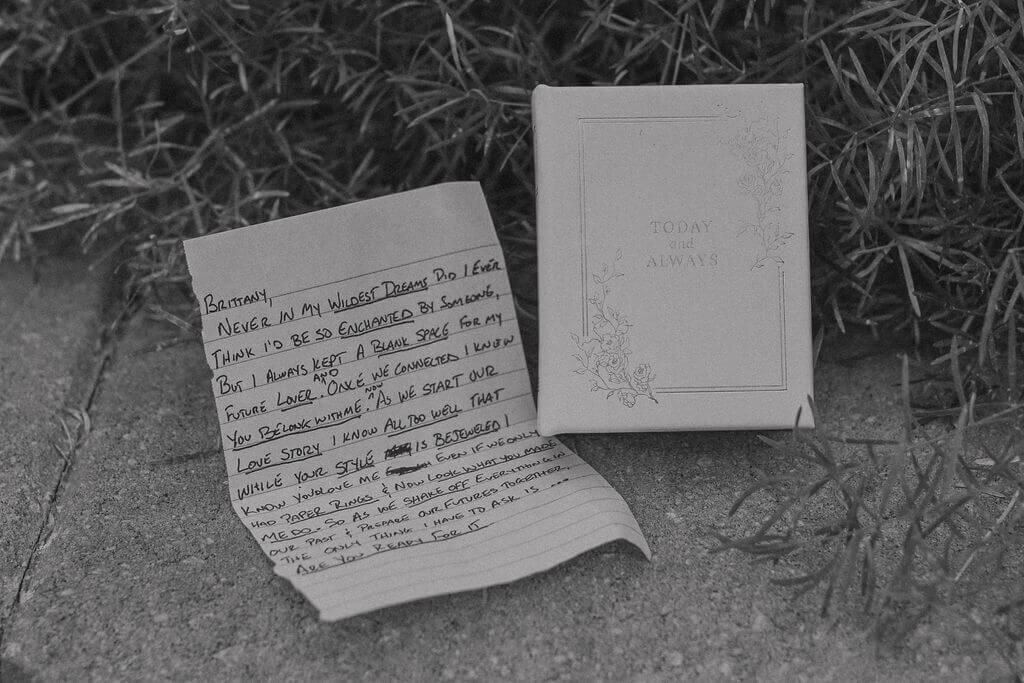 BRITTANY,
NEVER IN MY WILDEST DREAMS DID I EVER
THINK I'D BE SO ENCHANTED BY SOMEONE,
BUT I ALWAYS KEPT A BLANK SPACE FOR MY
FUTURE LOVER. AND ONCE WE CONNECTED I KNEW
YOU BELONG WITH ME. NOW AS WE START OUR
LOVE STORY I KNOW ALL TOO WELL THAT
WHILE YOUR STYLE IS BEJEWELED I
KNOW YOU'D LOVE ME EVEN IF WE ONLY
HAD PAPER RINGS & NOW LOOK WHAT YOU MADE
ME DO. SO AS WE SHAKE OFF EVERYTHING IN
OUR PAST & PREPARE OUR FUTURES TOGETHER,
THE ONLY THING I HAVE TO ASK IS ....
ARE YOU READY FOR IT
TODAY
and
ALWAYS